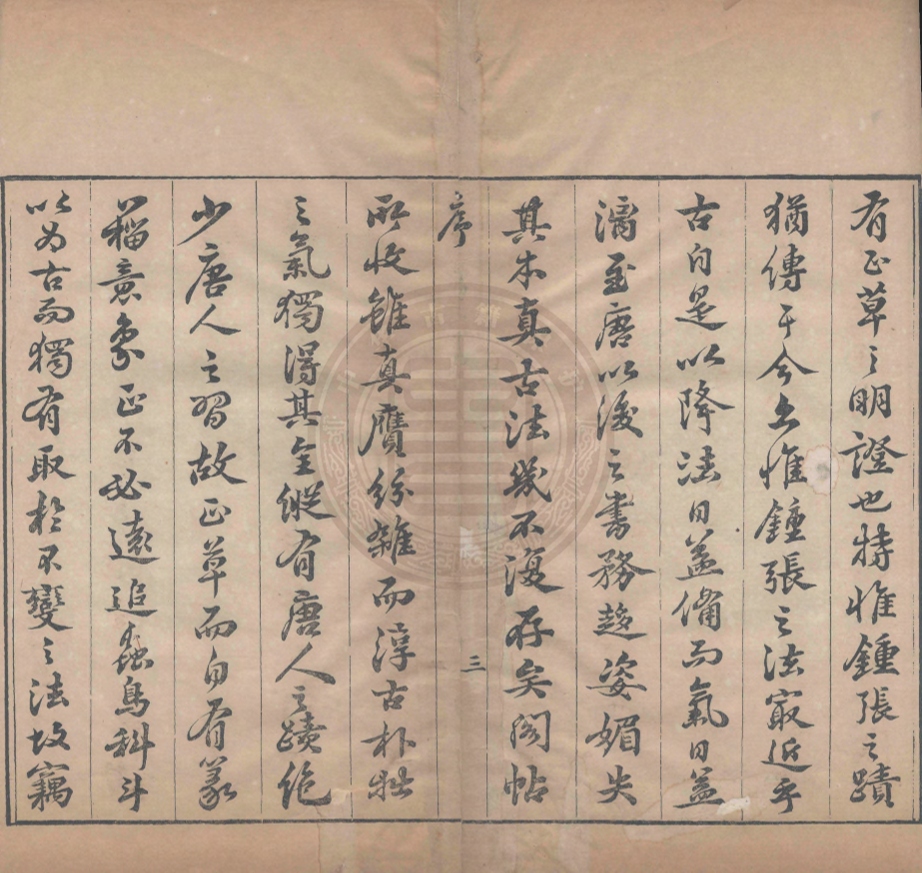 有正草之明證也特惟鍾張之蹟
猶傳于今也惟鍾張之法㝡近乎
古自是以降法日益備而氣日益
漓至唐以後之書務趨姿媚失
其本真古法幾不復存矣閣帖
序
三
所收雖真贋紛雜而淳古朴拙
之氣獨得其全縱有唐人之蹟絶
少唐人之習故正草而自有篆
籀意象正不必遠追蟲鳥科斗
以為古而獨有取於不變之法故竊